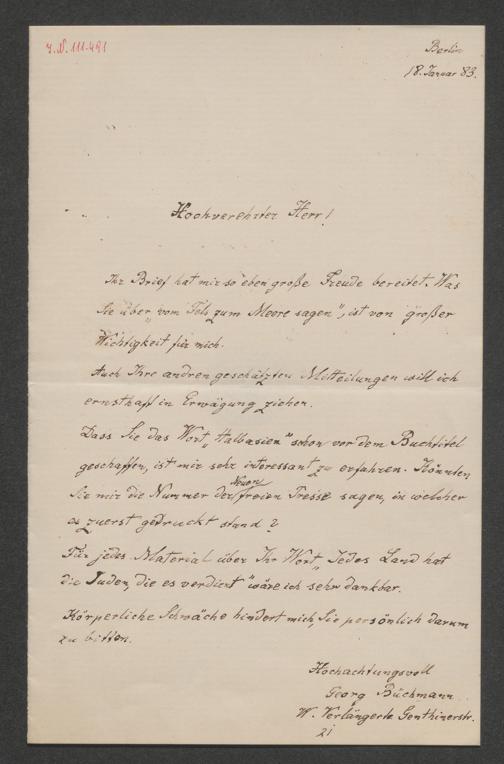 J.N. 111.491
Berlin
18. Januar 83.
Hochverehrter Herr!
Ihr Brief hat mir so eben große Freude bereitet. Was
Sie über „vom Fels zum Meere sagen", ist von großer
Wichtigkeit für mich.
Auch Ihre andren geschätzten Mitteilungen will ich
ernsthaft in Erwägung ziehen.
Dass Sie das Wort „Halbasien" schon vor dem Buchtitel
geschaffen, ist mir sehr interessant zu erfahren. Könnten
Sie mir die Nummer der Neuen freien Presse sagen, in welcher
es zuerst gedruckt stand?
Für jedes Material über Ihr Wort „Jedes Land hat
die Juden, die es verdient" wäre ich sehr dankbar.
Körperliche Schwäche hindert mich, Sie persönlich darum
zu bitten.
Hochachtungsvoll
Georg Büchmann
W. Verlängerte Genthinerstr.
21